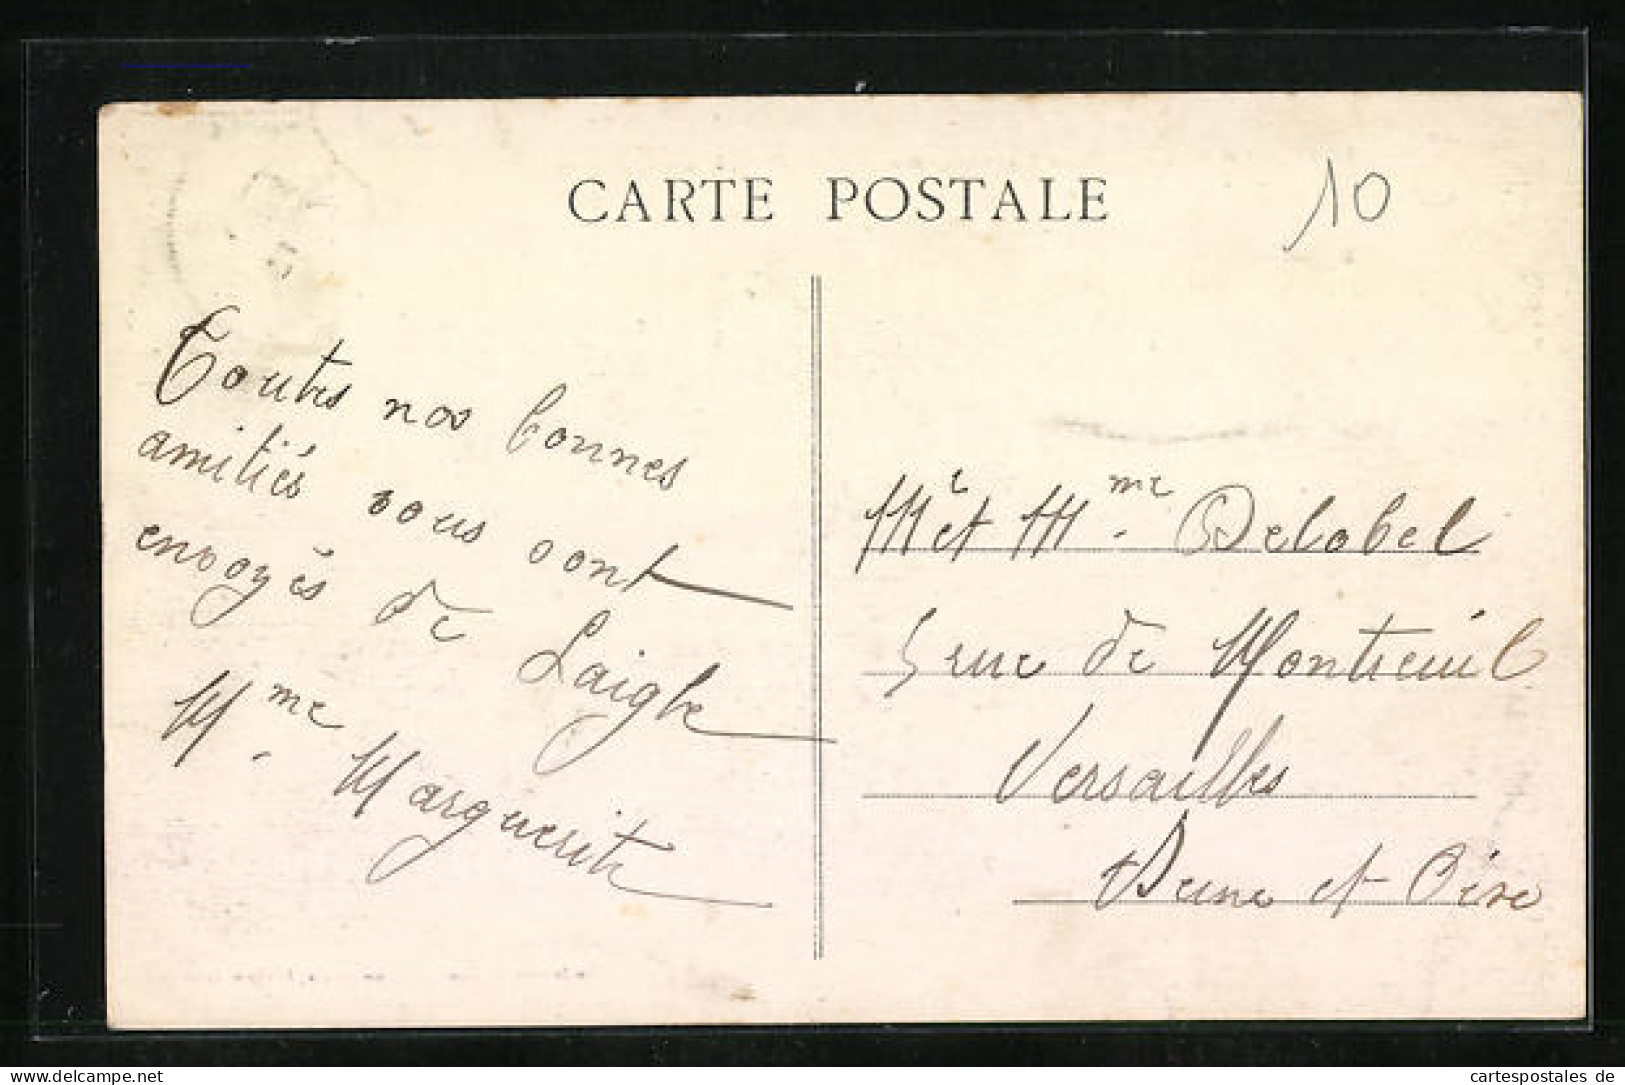 CARTE POSTALE
10
Toutes nos bonnes
amitiés vous sont
envoyés de Laigle
Mme Marguerite
Mr et Mme Delobel
5 rue de Montreuil
Versailles
Seine et Oise
www.delcampe.net
cartespostales de